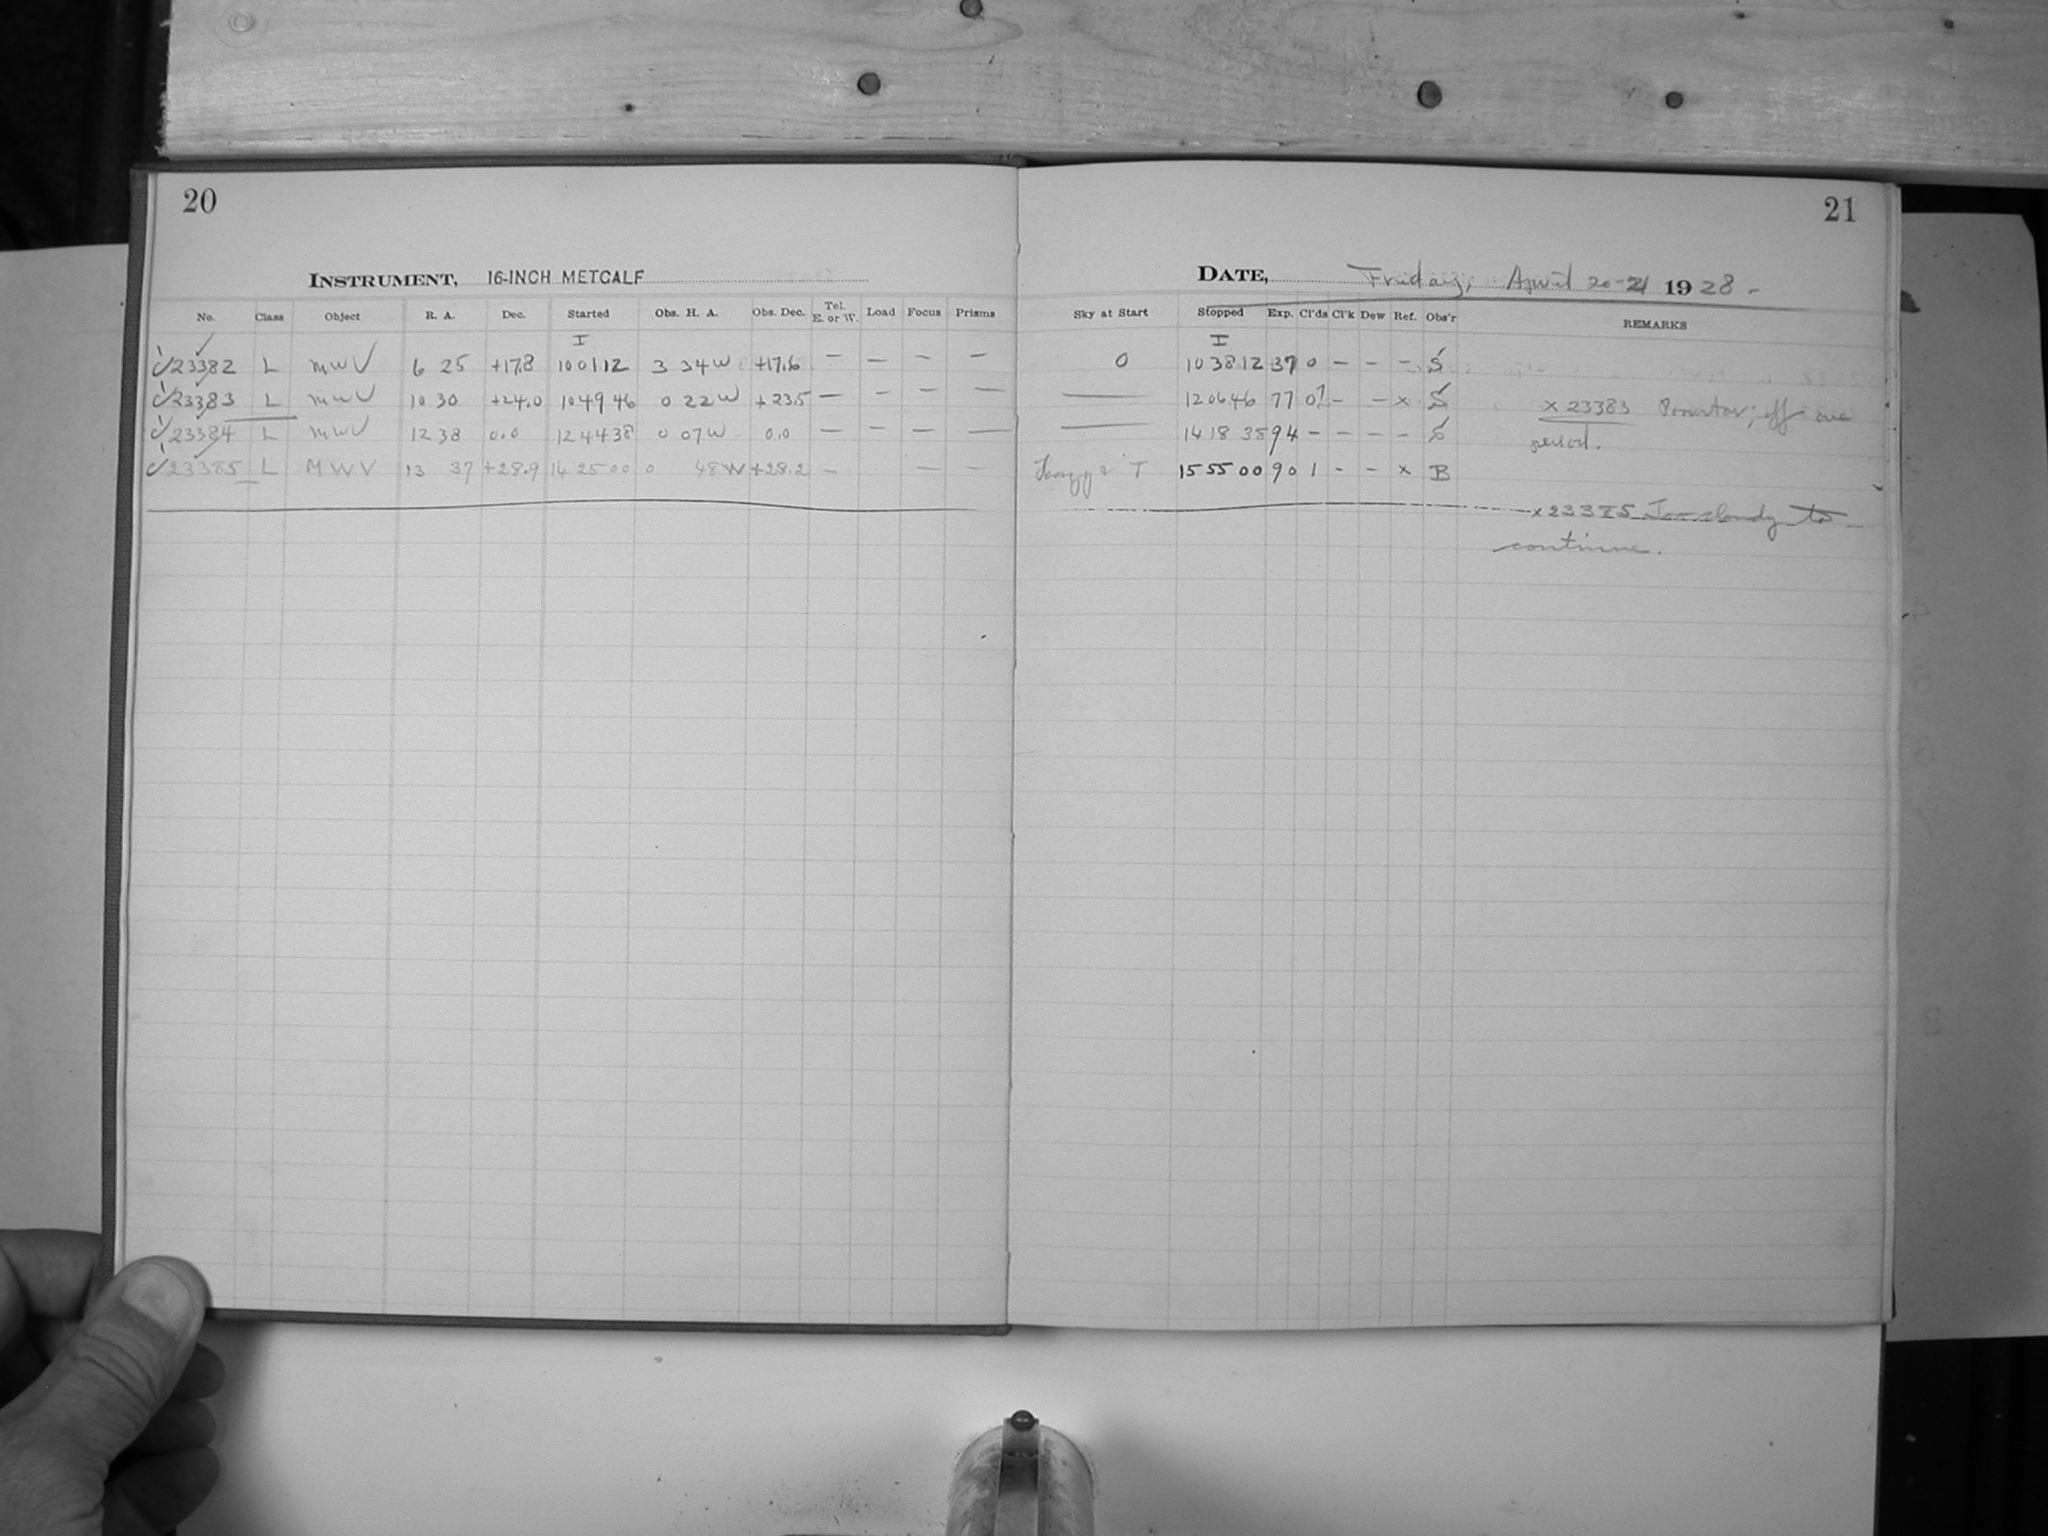 20
INSTRUMENT, 16-INCH METCALF
No. Class Object R. A. Dec. Started Obs. H. A. Obs. Dec. Tel. E. or W. Load Focus Prisms
I
23382 L MWV 6 25 +17.8 10 01 12 3 34 W +17.6 — — — —
23383 L MWV 10 30 +24.0 10 49 46 0 22 W +23.5 — — — —
23384 L MWV 12 38 0.0 12 44 38 0 07 W 0.0 — — — —
23385 L MWV 13 37 +28.9 14 25 00 0 48 W +28.2 — — —
21
DATE, Friday, April 20-21 1928-
Sky at Start Stopped Exp. Cl'ds Cl'k Dew Ref. Obs'r REMARKS
I
0 10 38 12 37 0 — — — S
— 12 06 46 77 0? — — x S x 23383 off one
— 14 18 38 94 — — — — S period.
T 15 55 00 90 1 — — x B
x 23385 Too cloudy to
continue.